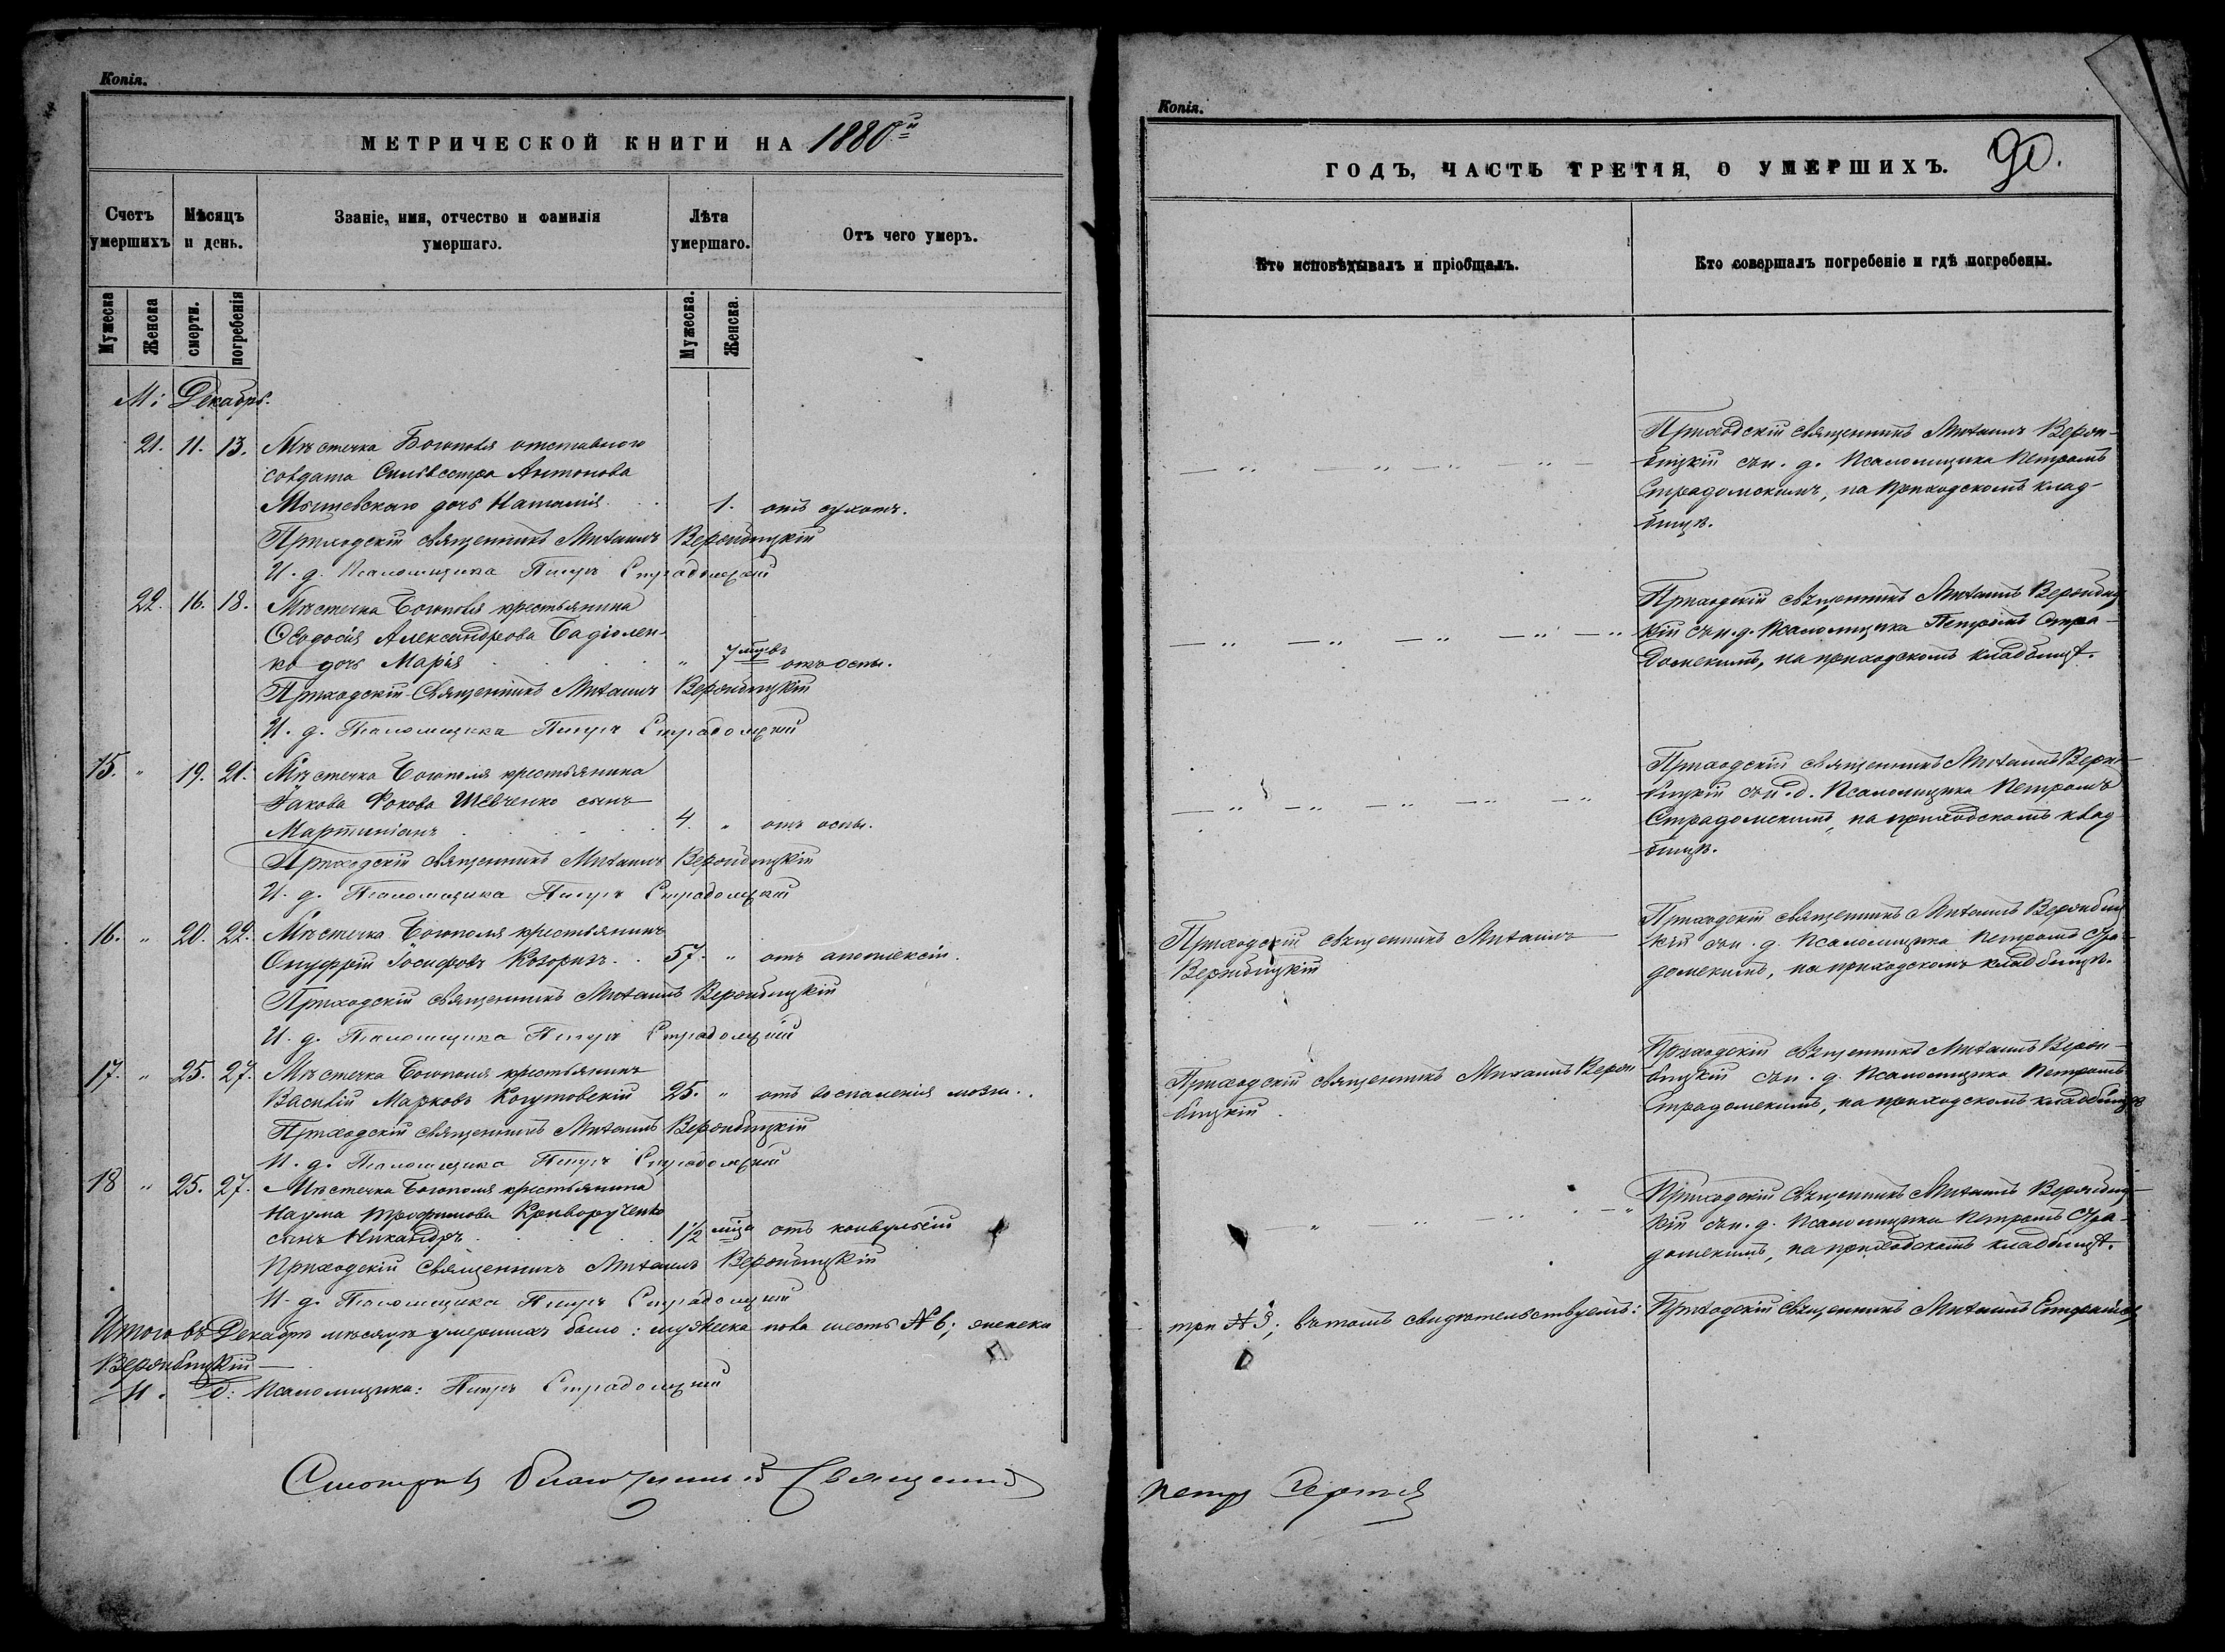 Копія.
МЕТРИЧЕСКОЙ КНИГИ НА 1880й
Счетъ умершихъ
Мѣсяцъ и день.
Званіе, имя, отчество и фамилія умершаго.
Лѣта умершаго.
Отъ чего умеръ.
Мужеска
Женска
смерти.
погребенія
Мужеска.
Женска.
М: Декабрь.
21. 11. 13. Мѣстечка Богополя отставного
солдата Сильвестра Антонова
дочь Наталія. 1. отъ сухотъ.
Приходскій священникъ Михаилъ Вербицкій
И. д. Псаломщика Петръ Страдомскій
22. 16. 18. Мѣстечка Богополя крестьянина
Ѳеодосія Александрова Бадіолен-
ко дочь Марія " 7 отъ оспы.
Приходскій Священникъ Михаилъ Вербицкій
И. д. Псаломщика Петръ Страдомскій
15. " 19. 21. Мѣстечка Богополя крестьянина
Іакова Фокова Шевченко сынъ
Мартиніанъ 4. " отъ оспы.
Приходскій священникъ Михаилъ Вербицкій
И. д. Псаломщика Петръ Страдомскій
16. " 20. 22. Мѣстечка Богополя крестьянинъ
Онуфрій Іосифовъ Козоризъ. 57. " отъ апоплексіи.
Приходскій священникъ Михаилъ Вербицкій
И. д. Псаломщика Петръ Страдомскій
17. " 25. 27. Мѣстечка Богополя крестьянинъ
Василій Марковъ Когутовскій 25. " отъ воспаленія мозга.
Приходскій священникъ Михаилъ Вербицкій
И. д. Псаломщика Петръ Страдомскій
18 " 25. 27. Мѣстечка Богополя крестьянина
Наума Трофимова Криворученко
сынъ Никандръ 1½ мца отъ конвульсій
Приходскій Священникъ Михаилъ Вербицкій
И. д. Псаломщика Петръ Страдомскій
Итого въ Декабрѣ мѣсяцѣ умершихъ было: мужеска пола шесть № 6; женска
Вербицкій
И. д: Псаломщика: Петръ Страдомскій
Смотрѣлъ благочинный Священникъ
Копія.
ГОДЪ, ЧАСТЬ ТРЕТІЯ, О УМЕРШИХЪ. 90.
Кто исповѣдывалъ и пріобщалъ.
Кто совершалъ погребеніе и гдѣ погребены.
Приходскій священникъ Михаилъ Верби-
цкій съ и. д. Псаломщика Петромъ
Страдомскимъ, на приходскомъ клад-
бищѣ.
Приходскій священникъ Михаилъ Вербиц
кій съ и. д. Псаломщика Петромъ Стра-
домскимъ, на приходскомъ кладбищѣ.
Приходскій священникъ Михаилъ Верби-
цкій съ и. д. Псаломщика Петромъ
Страдомскимъ, на приходскомъ клад
бищѣ.
Приходскій священникъ Михаилъ
Вербицкій
Приходскій священникъ Михаилъ Вербиц
кій съ и. д. Псаломщика Петромъ Стра-
домскимъ, на приходскомъ кладбищѣ.
Приходскій священникъ Михаилъ Верби
цкій
Приходскій священникъ Михаилъ Верби-
цкій съ и. д. Псаломщика Петромъ
Страдомскимъ, на приходскомъ кладбищѣ
Приходскій Священникъ Михаилъ Вербиц-
кій съ и. д. Псаломщика Петромъ Стра-
домскимъ, на приходскомъ кладбищѣ.
три № 3; въ томъ свидѣтельствуемъ: Приходскій священникъ Михаилъ
Петръ